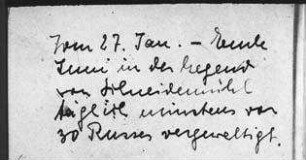 Vom 27. Jan. – Ende
Juni in der Gegend
von Schneidemühl
täglich minstens von
30 Russen vergewaltigt.